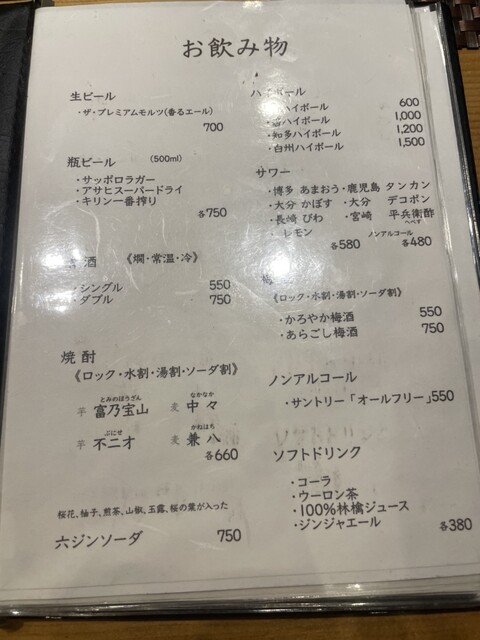 お飲み物
生ビール
・ザ・プレミアムモルツ(香るエール)
700
瓶ビール (500ml)
・サッポロラガー
・アサヒスーパードライ
・キリン一番搾り
各750
酒 《燗・常温・冷》
・シングル 550
・ダブル 750
焼酎
《ロック・水割・湯割・ソーダ割》
とみのほうざん なかなか
芋 富乃宝山 麦 中々
ぶにせ かねはち
芋 不二才 麦 兼八
各660
桜花、柚子、煎茶、山椒、玉露、桜の葉が入った
六ジンソーダ 750
ハイボール
ハイボール 600
ハイボール 1,000
・知多ハイボール 1,200
・白州ハイボール 1,500
サワー
・博多 あまおう・鹿児島 タンカン
・大分 かぼす ・大分 デコポン
・長崎 びわ ・宮崎 平兵衛酢
へべす
レモン ノンアルコール
各580 各480
梅
《ロック・水割・湯割・ソーダ割》
・かろやか梅酒 550
・あらごし梅酒 750
ノンアルコール
・サントリー「オールフリー」550
ソフトドリンク
・コーラ
・ウーロン茶
・100%林檎ジュース
・ジンジャエール 各380